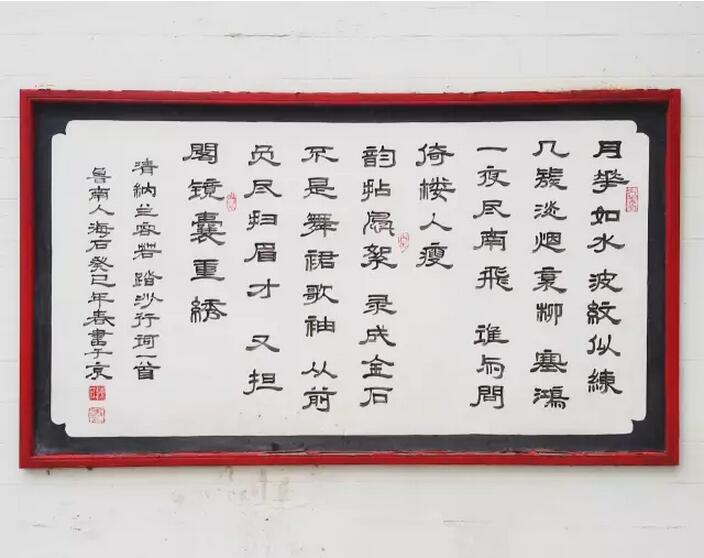 月華如水 波紋似練
几簇淡烟衰柳 塞鴻
一夜尽南飛 誰与問
倚楼人瘦
韵拈風絮 录成金石
不是舞裙歌袖 从前
负尽扫眉才 又担
閣镜囊重綉
清纳兰容若踏沙行詞一首
鲁南人海石癸巳年春書于京